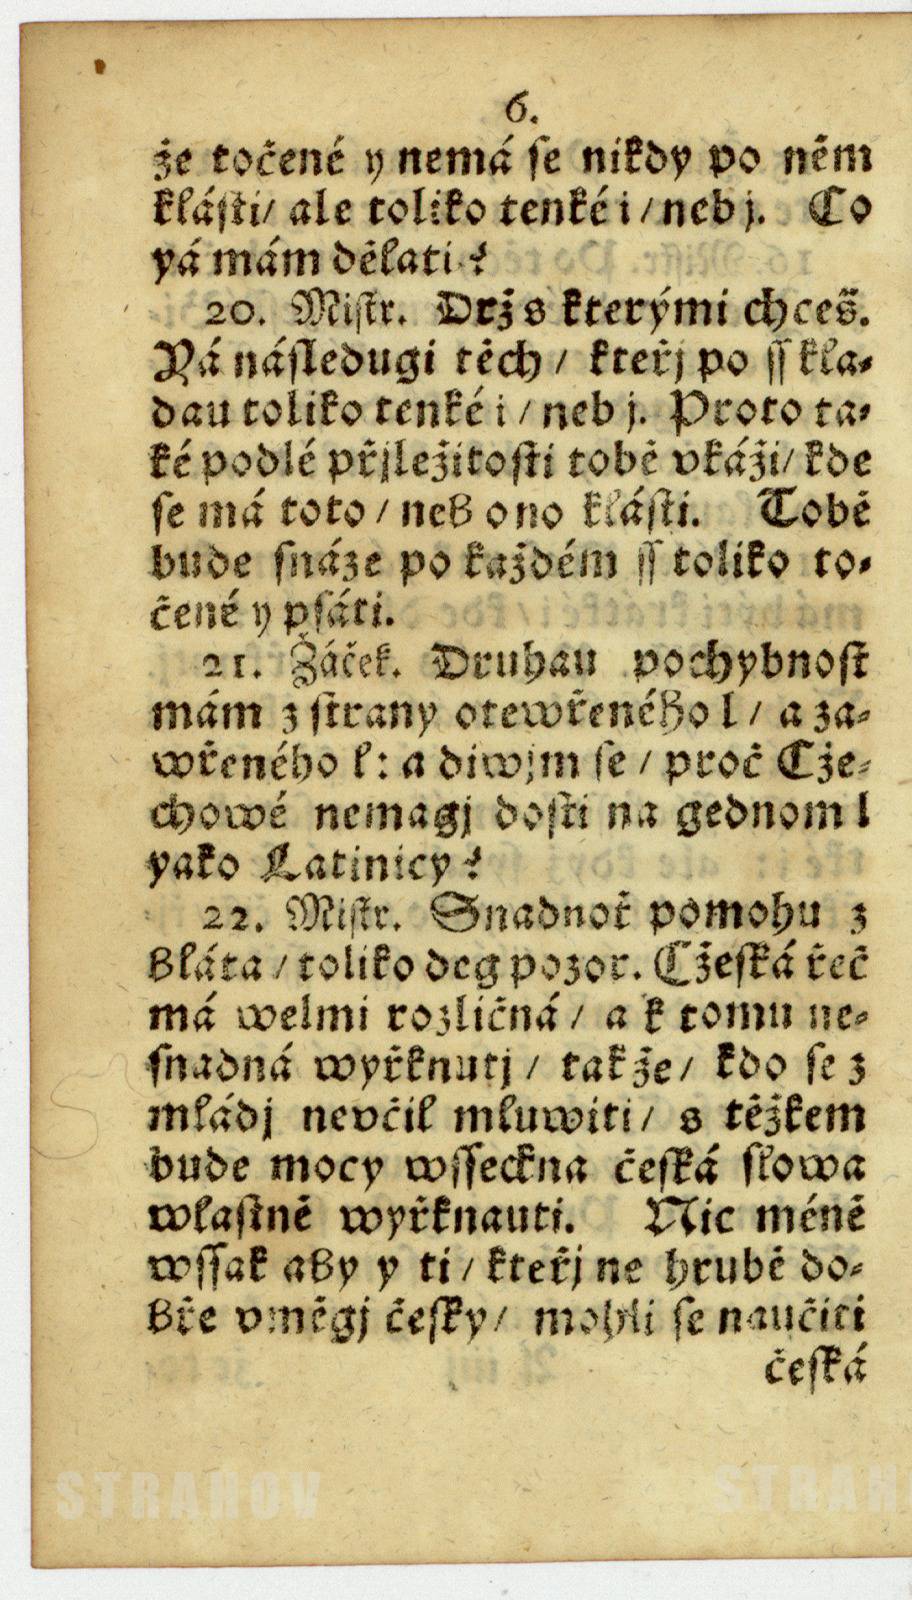 6.
že točené y nemá se nikdy po něm
klásti/ ale toliko tenké i / neb j. Co
yá mám dělati?
20. Mistr. Drž s kterými chceš.
Yá následugi těch / kteřj po ss kla-
dau toliko tenké i / neb j. Proto ta-
ké podlé přjležitosti tobě vkáži/ kde
se má toto / neb ono klásti. Tobě
bude snáze po každém ss toliko to-
čené y psáti.
21. Žáček. Druhau pochybnost
mám z strany otewřeného l / a za-
wřeného ł: a diwjm se / proč Cže-
chowé nemagj dosti na gednom l
yako Latinicy?
22. Mistr. Snadnoť pomohu z
bláta / toliko deg pozor. Cžeská řeč
má welmi rozličná / a k tomu ne-
snadná wyřknutj / tak že / kdo se z
mládj nevčil mluwiti / s těžkem
bude mocy wsseckna česká slowa
wlastně wyřknauti. Nic méně
wssak aby y ti / kteřj ne hrubě do-
bře vměgj česky / mohli se naučiti
česká
STRAHOV
STRAH